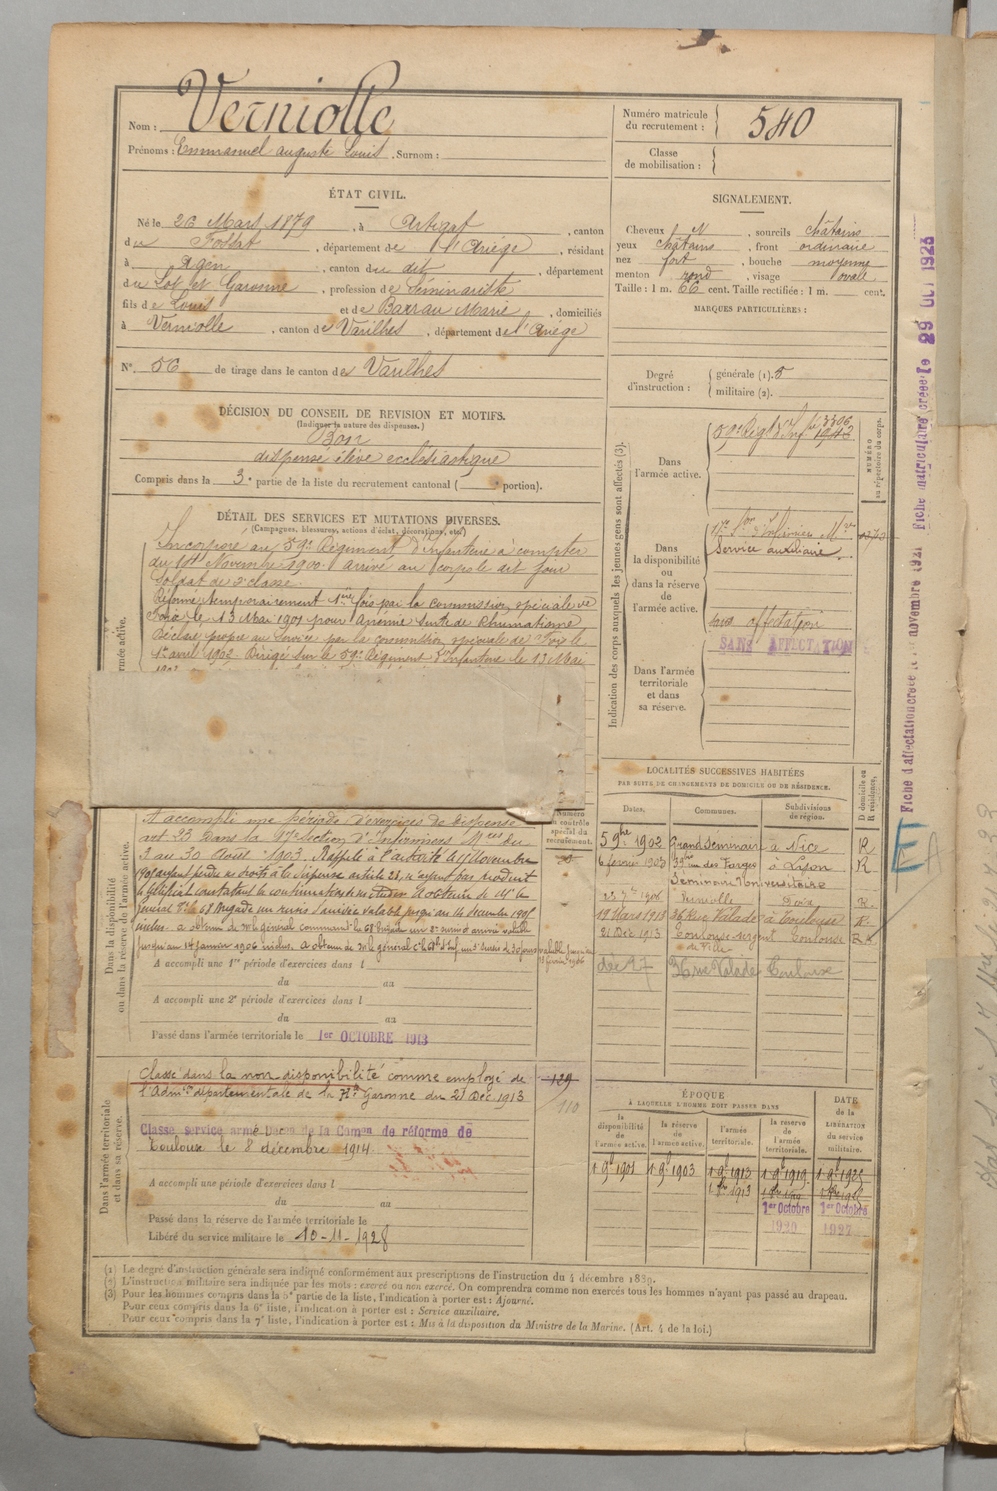 Nom : Verniolle
Prénoms : Emmanuel auguste Louis . Surnom :
Numéro matricule du recrutement : 540
Classe de mobilisation :
ÉTAT CIVIL.
Né le 26 Mars 1879 , à Artigat , canton
du Fossat , département de l'Ariège , résidant
à Agen , canton du dit , département
du Lot et Garonne , profession de Séminariste
fils de Louis et de Barrau Marie , domiciliés
à Verniolle , canton de Varilhes , département de l'Ariège
N° 56 de tirage dans le canton de Varilhes
SIGNALEMENT.
Cheveux N , sourcils châtains
yeux châtains , front ordinaire
nez fort , bouche moyenne
menton rond , visage ovale
Taille : 1 m. 66 cent. Taille rectifiée : 1 m. cent.
MARQUES PARTICULIÈRES :
Degré d'instruction : générale (1). 5
militaire (2).
DÉCISION DU CONSEIL DE REVISION ET MOTIFS.
(Indiquer la nature des dispenses.)
Bon
dispensé élève ecclésiastique
Compris dans la 3e partie de la liste du recrutement cantonal ( portion).
DÉTAIL DES SERVICES ET MUTATIONS DIVERSES.
(Campagnes, blessures, actions d'éclat, décorations, etc.)
Incorporé au 59e Régiment d'Infanterie à compter
du 16 Novembre 1900. arrivé au corps le dit jour
Soldat de 2e classe.
Réformé temporairement 1ère fois par la commission spéciale de
Foix le 13 Mai 1901 pour Anémie suite de Rhumatisme
Déclaré propre au Service par la commission spéciale de Foix le
1er avril 1902 Dirigé sur le 59e Régiment d'Infanterie le 13 Mai
Indication des corps auxquels les jeunes gens sont affectés (3).
Dans l'armée active.
59e Rég. d'Inf. 3306
NUMÉRO au répertoire du corps.
Dans la disponibilité ou dans la réserve de l'armée active.
17e Son d'Infirmiers Mres
Service auxiliaire.
sans affectation
SANS AFFECTATION
Dans l'armée territoriale et dans sa réserve.
Dans la disponibilité ou dans la réserve de l'armée active.
A accompli une période d'exercices de dispensé
art. 23. Dans la 17e Section d'Infirmiers Mres du
3 au 30 Août 1903. Rappelé à l'activité le 15 Novembre
1905 ayant perdu ses droits à la dispense article 23, n'ayant pas produit
le certificat constatant la continuation de ses études. Obtenu de Mr le
Général Ct la 68 Brigade un sursis d'arrivée valable jusqu'au 14 décembre 1905
inclus. a obtenu de Mr le général commandt la 68e brigade un 2e sursis d'arrivée valable
jusqu'au 14 janvier 1906 inclus. A obtenu de Mr le général Ct la 68e Bde d'Inf un 3e sursis de 30 jours valable jusqu'au
A accompli une 1re période d'exercices dans l
du au
A accompli une 2e période d'exercices dans l
du au
Passé dans l'armée territoriale le 1er OCTOBRE 1913
Numéro au contrôle spécial du recrutement.
LOCALITÉS SUCCESSIVES HABITÉES
PAR SUITE DE CHANGEMENTS DE DOMICILE OU DE RÉSIDENCE.
Dates. Communes. Subdivisions de région. D domicile ou R résidence.
5 9bre 1902 Grand Séminaire à Nice R
6 février 1903 39 rue des Farges à Lyon R
Séminaire Universitaire
Verniolle Foix R
18 Mars 1913 36 Rue Valade à Toulouse R
21 Dec 1913 Toulouse sergent de Ville Toulouse R
dec 27 36 rue Valade Toulouse
Dans l'armée territoriale et dans sa réserve.
Classé dans la non disponibilité comme employé de
l'Admon départementale de la Hte Garonne du 21 Déc. 1913
139
110
Classé service armé Décon de la Comon de réforme de
Toulouse le 8 décembre 1914.
A accompli une période d'exercices dans l
du au
Passé dans la réserve de l'armée territoriale le
Libéré du service militaire le 10-11-1928
ÉPOQUE
À LAQUELLE L'HOMME DOIT PASSER DANS
la disponibilité de l'armée active. la réserve de l'armée active. l'armée territoriale. la réserve de l'armée territoriale. DATE de la LIBÉRATION du service militaire.
1 9bre 1901 1 9bre 1903 1 9bre 1913 1 9bre 1919 1 9bre 1925
1er Octobre 1920 1er Octobre 1927
(1) Le degré d'instruction générale sera indiqué conformément aux prescriptions de l'instruction du 4 décembre 1889.
(2) L'instruction militaire sera indiquée par les mots : exercé ou non exercé. On comprendra comme non exercés tous les hommes n'ayant pas passé au drapeau.
(3) Pour les hommes compris dans la 5e partie de la liste, l'indication à porter est : Ajourné.
Pour ceux compris dans la 6e liste, l'indication à porter est : Service auxiliaire.
Pour ceux compris dans la 7e liste, l'indication à porter est : Mis à la disposition du Ministre de la Marine. (Art. 4 de la loi.)
Fiche d'affectation créée le novembre 1921 Fiche matriculaire créée le 29 OCT 1923